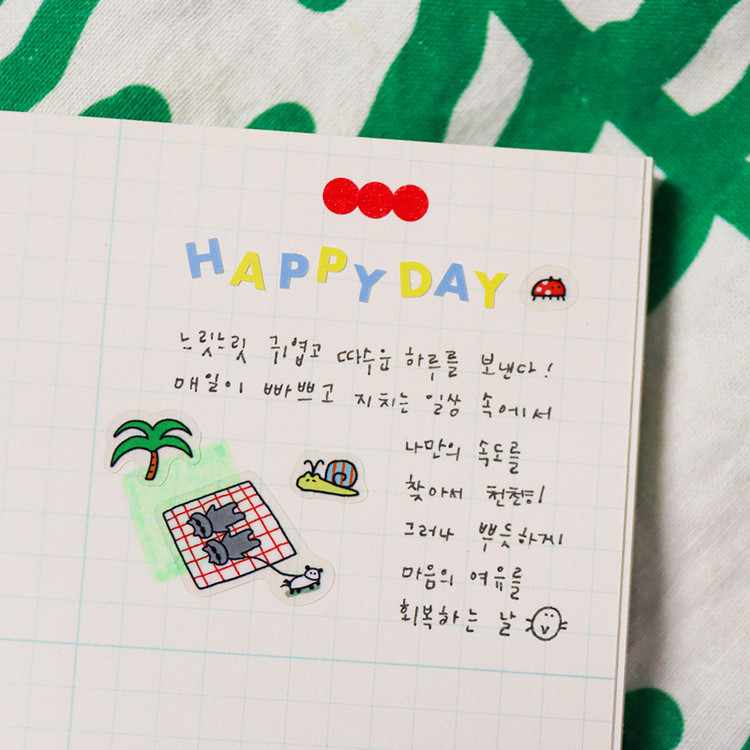 HAPPY DAY
느릿느릿 귀엽고 따수운 하루를 보낸다!
매일이 빠쁘고 지치는 일상 속에서
나만의 속도를
찾아서 천천히
그러나 뿌듯하게
마음의 여유를
회복하는 날